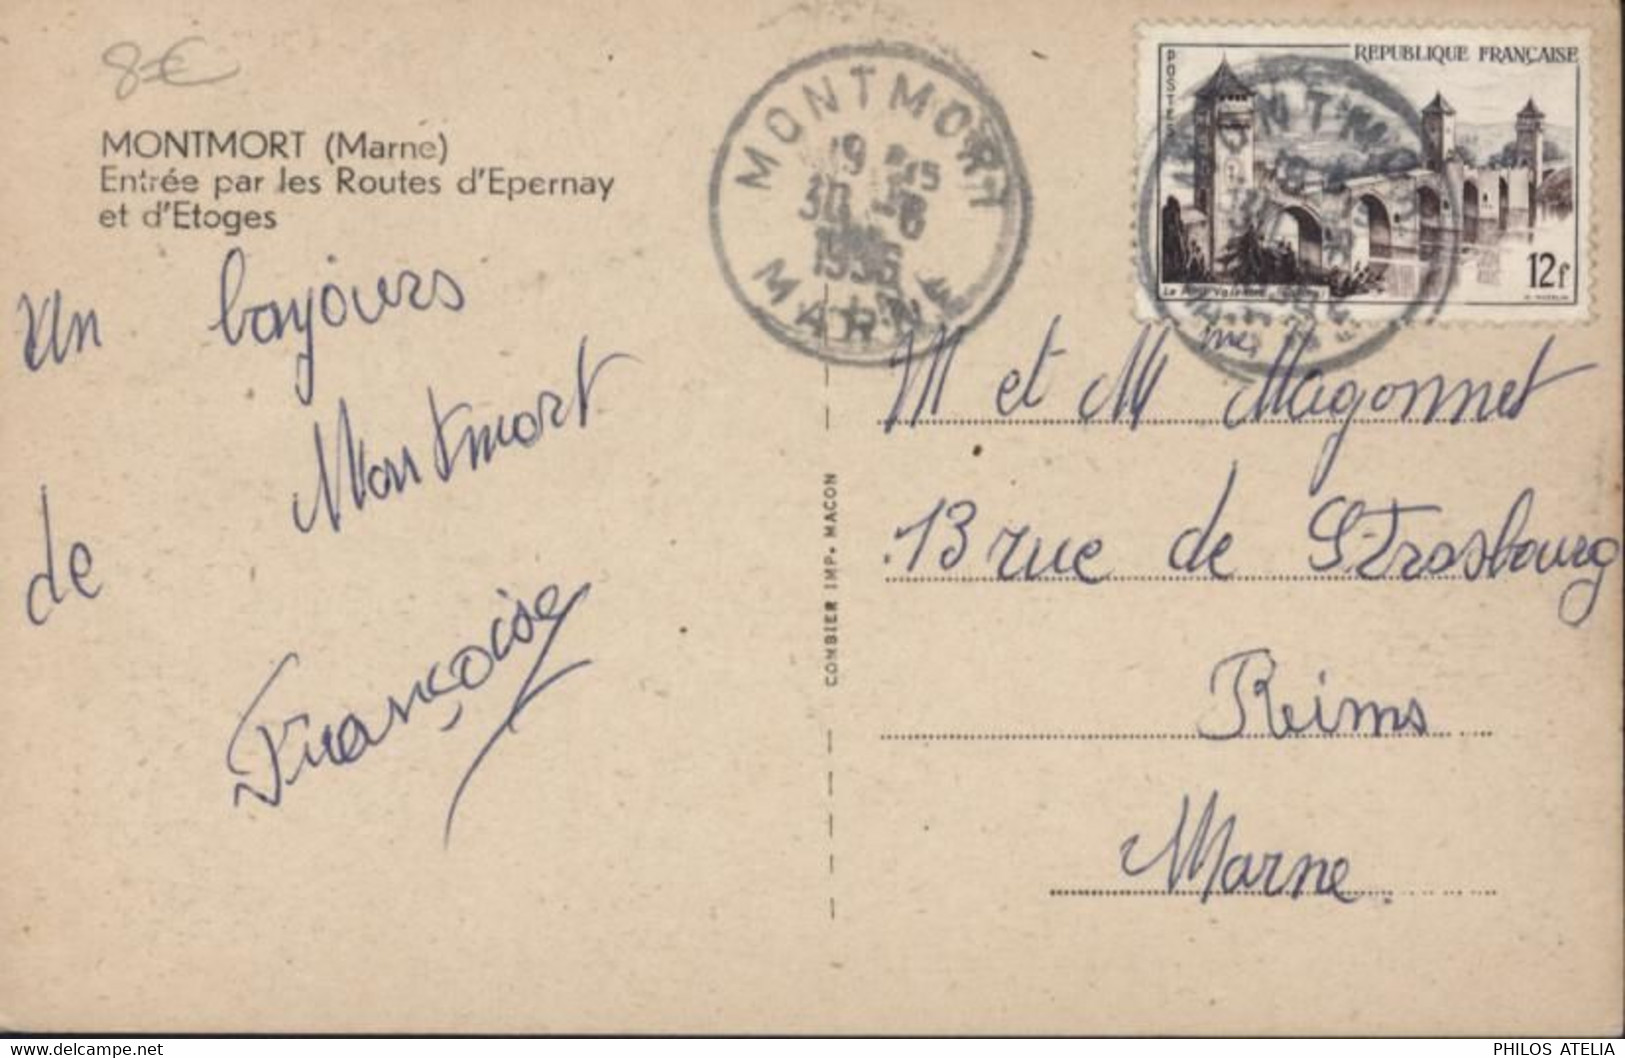 8€
MONTMORT (Marne)
Entrée par les Routes d'Epernay
et d'Etoges
Un bonjours
de Montmort
Françoise
COMBIER IMP. MACON
MONTMORT
19 H15
30 -8
1956
MARNE
REPUBLIQUE FRANÇAISE
POSTES
12f
MONTM
M et Mme Magonnet
13 rue de Strasbourg
Reims
Marne
PHILOS ATELIA